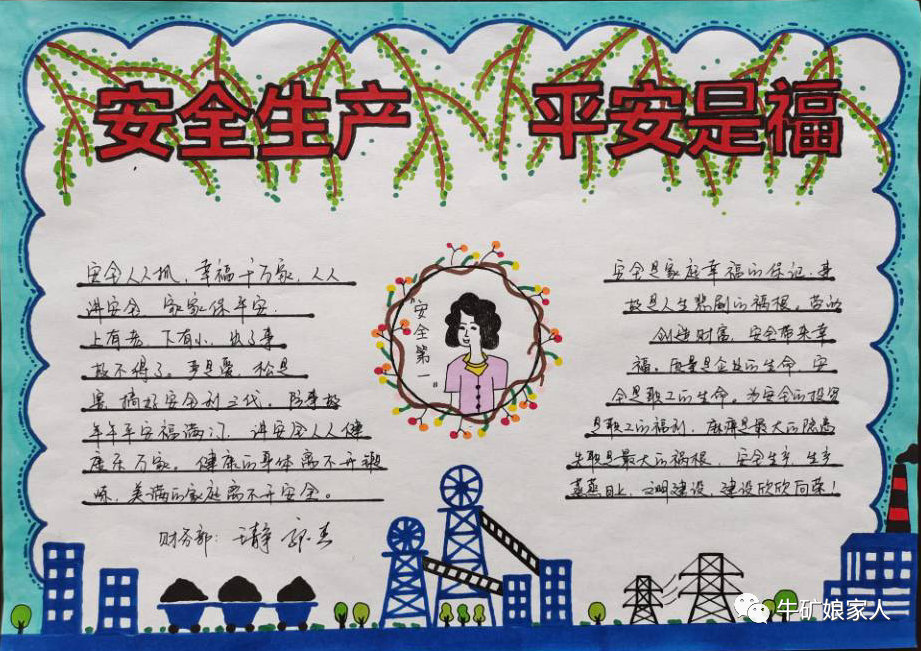 安全生产 平安是福
安全人人抓，幸福千万家，人人
讲安全，家家保平安．
上有老，下有小，出了事
故不得了。严是爱，松是
害，搞好安全利三代。防事故
年年平安福满门，讲安全人人健
康乐万家。健康的身体离不开锻
炼，美满的家庭离不开安全。
财务部：王静 郭杰
安全第一。
安全是家庭幸福的保记，事
故是人生悲剧的祸根。劳动
创造财富，安全带来幸
福。质量是企业的生命，安
全是职工的生命。为安全的投资
是职工的福利，麻痹是最大的隐患
失职是最大的祸根，安全生产，生产
蒸蒸日上，文明建设，建设欣欣向荣！
牛矿娘家人